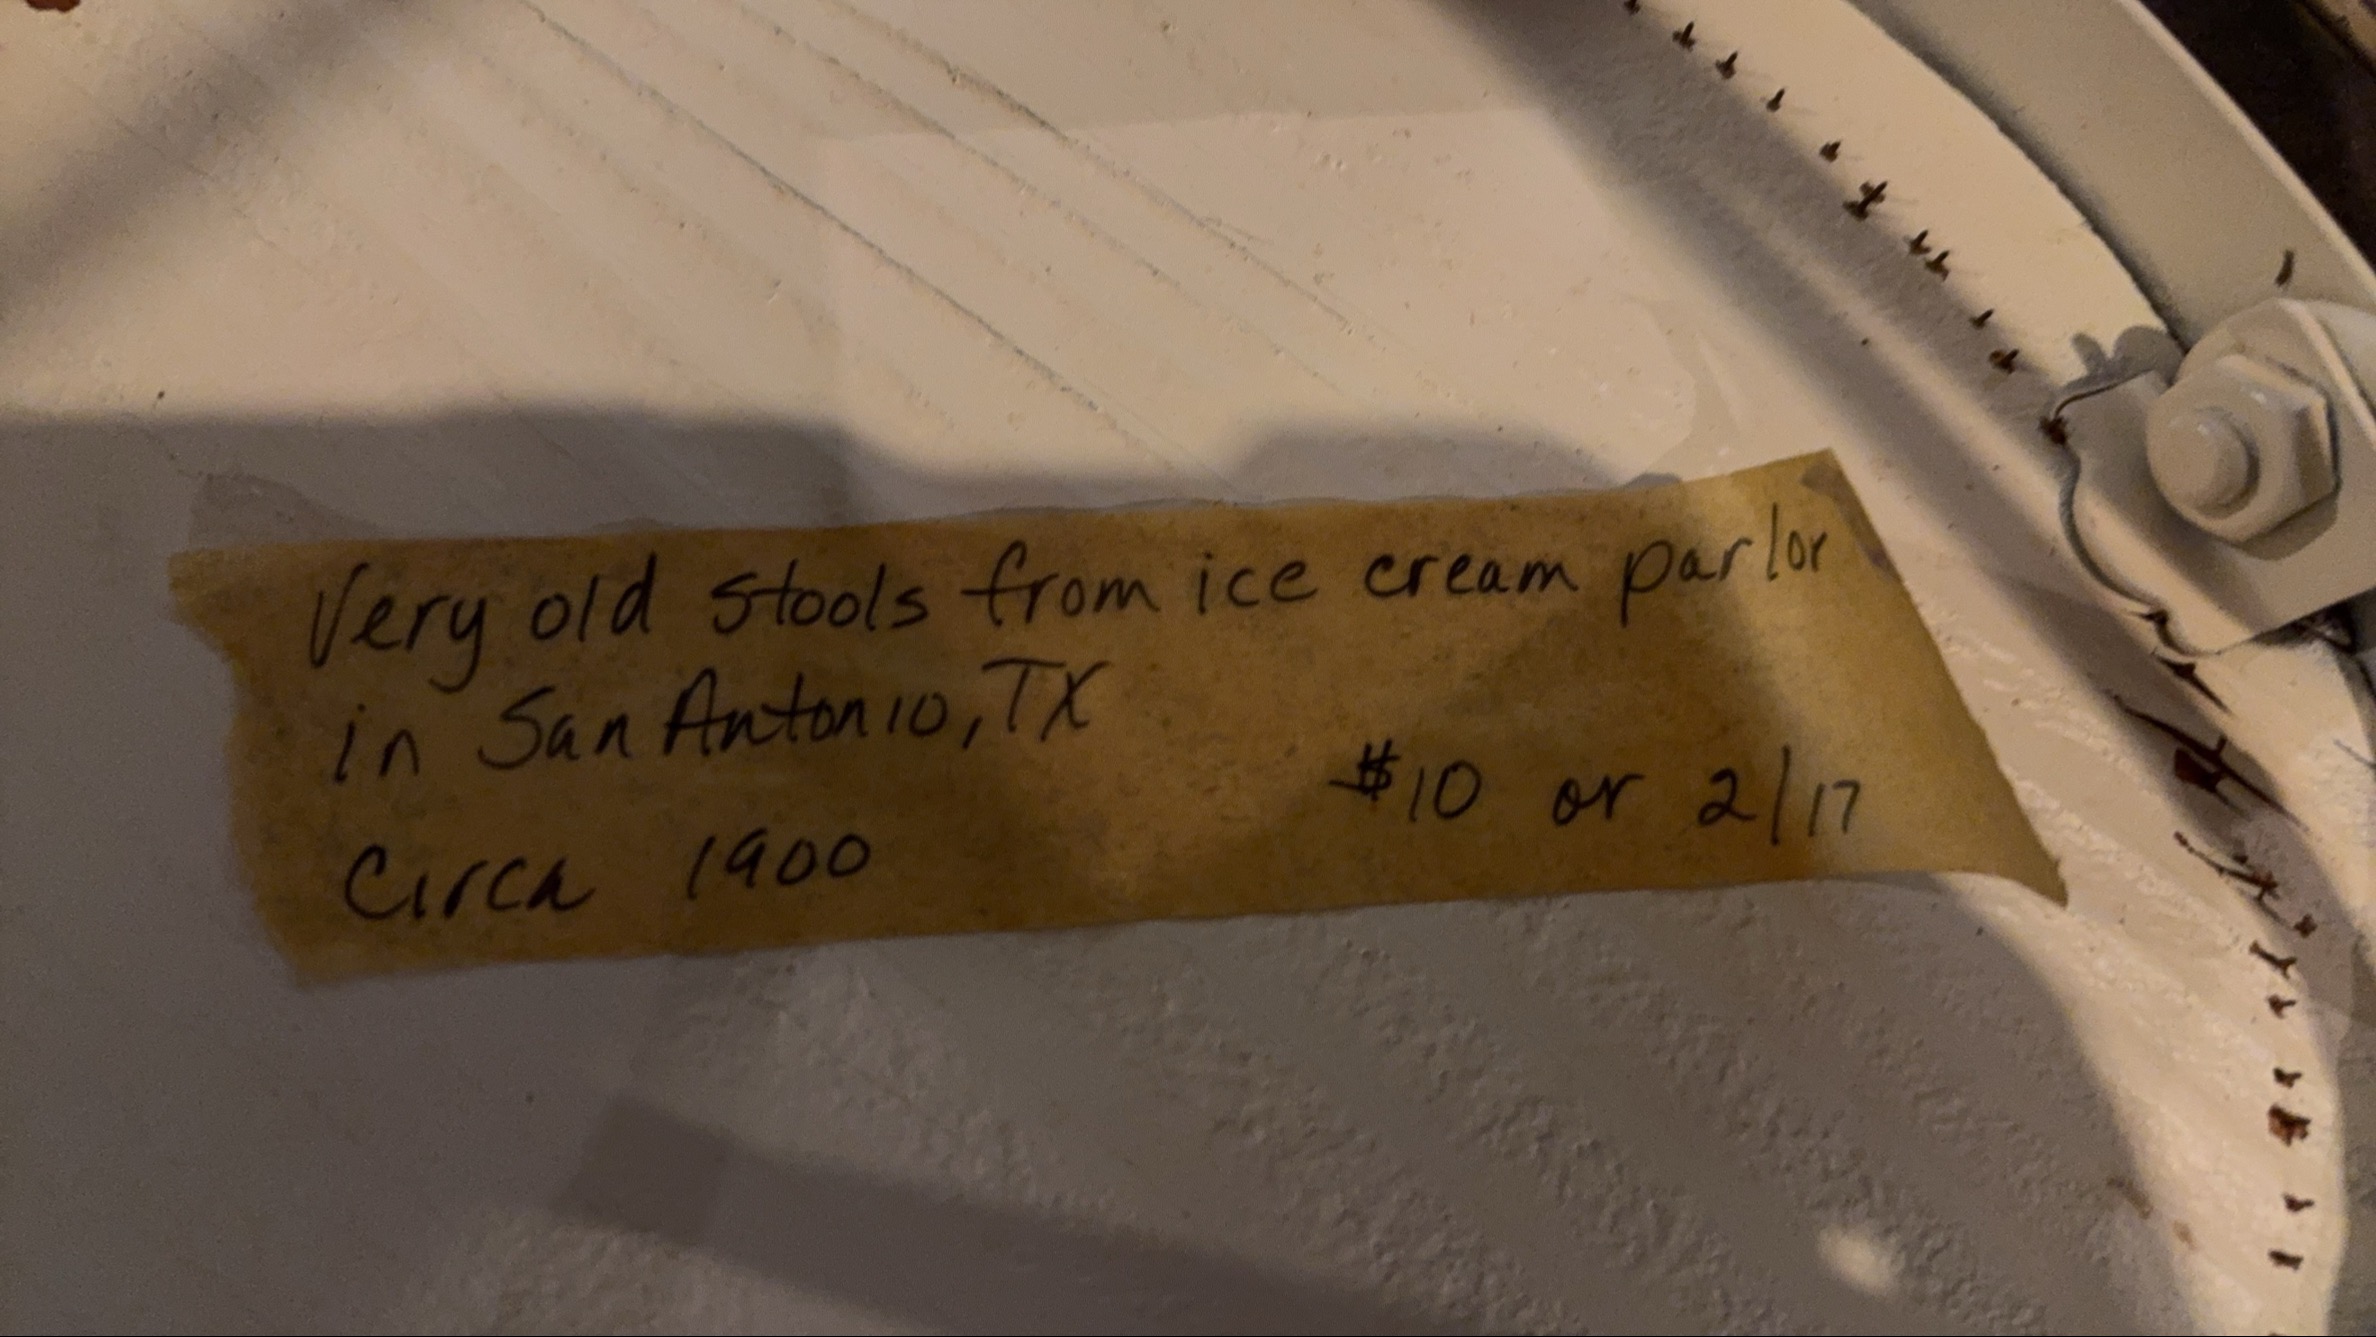 Very old stools from ice cream parlor
in San Antonio, TX
Circa 1900
$10 or 2/17